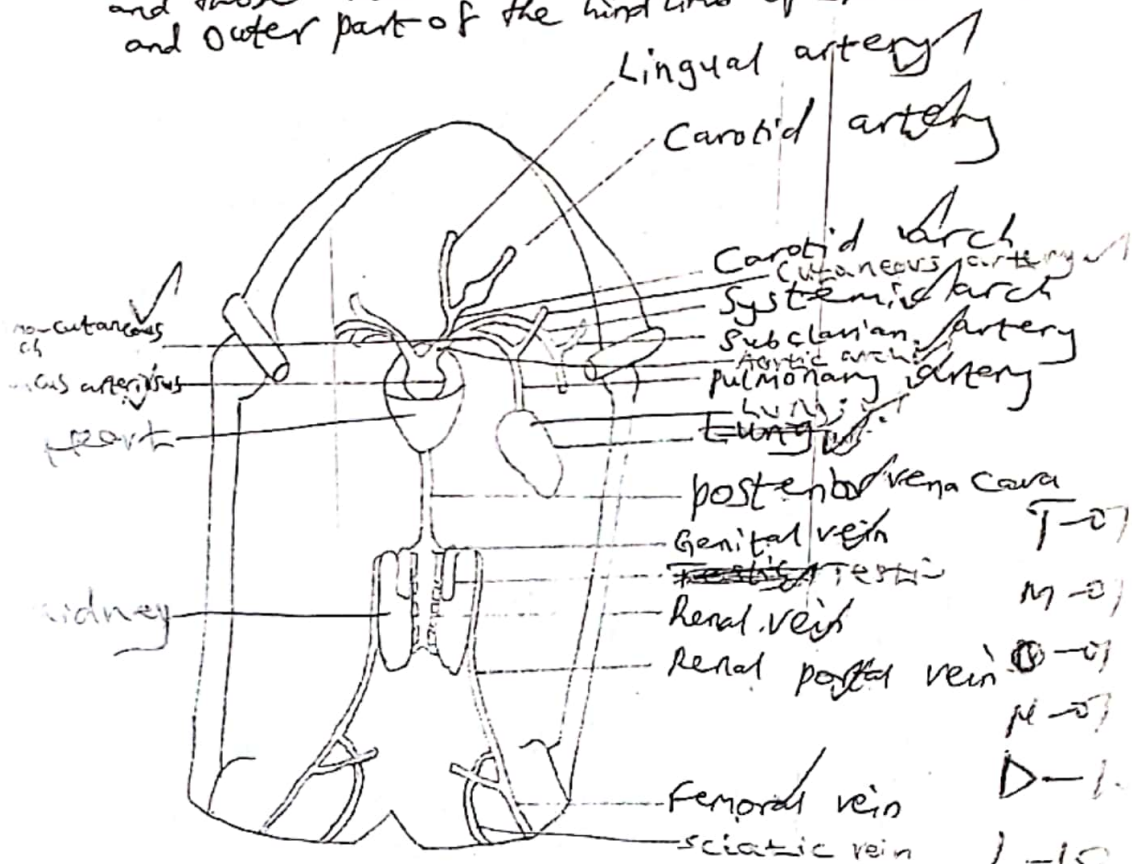 and those
and outer part of the hind limb of
Lingual artery
Carotid artery
Carotid arch
Cutaneous artery
Systemic arch
Subclavian artery
Aortic arch
pulmonary artery
Lung
posterior vena cava
Genital vein
Testis
Renal vein
Renal portal vein
Femoral vein
sciatic vein
mo-cutaneous
ch
cus arteriosus
Heart
kidney
T-01
M-01
D-1